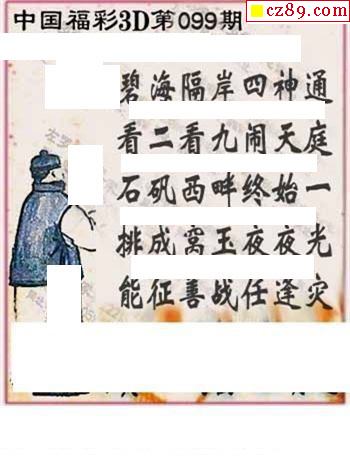 中国福彩3D第099期
cz89.com
碧海隔岸四神通
看二看九闹天庭
石矶西畔终始一
排成窝玉夜夜光
能征善战任逢灾